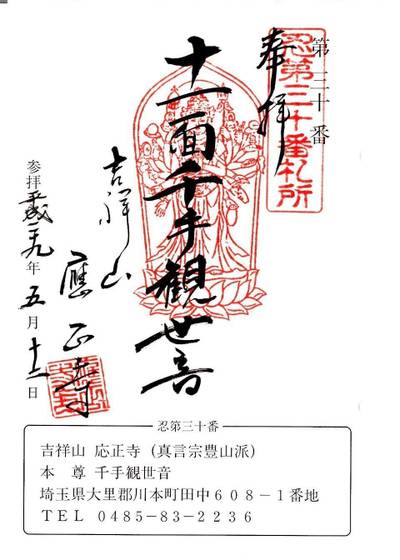 第三十番
奉拝
忍第三十番札所
十一面千手観世音
吉祥山
應正寺
参拝平成二十九年五月十二日
忍第三十番
吉祥山 応正寺（真言宗豊山派）
本 尊 千手観世音
埼玉県大里郡川本町田中６０８－１番地
ＴＥＬ ０４８５－８３－２２３６